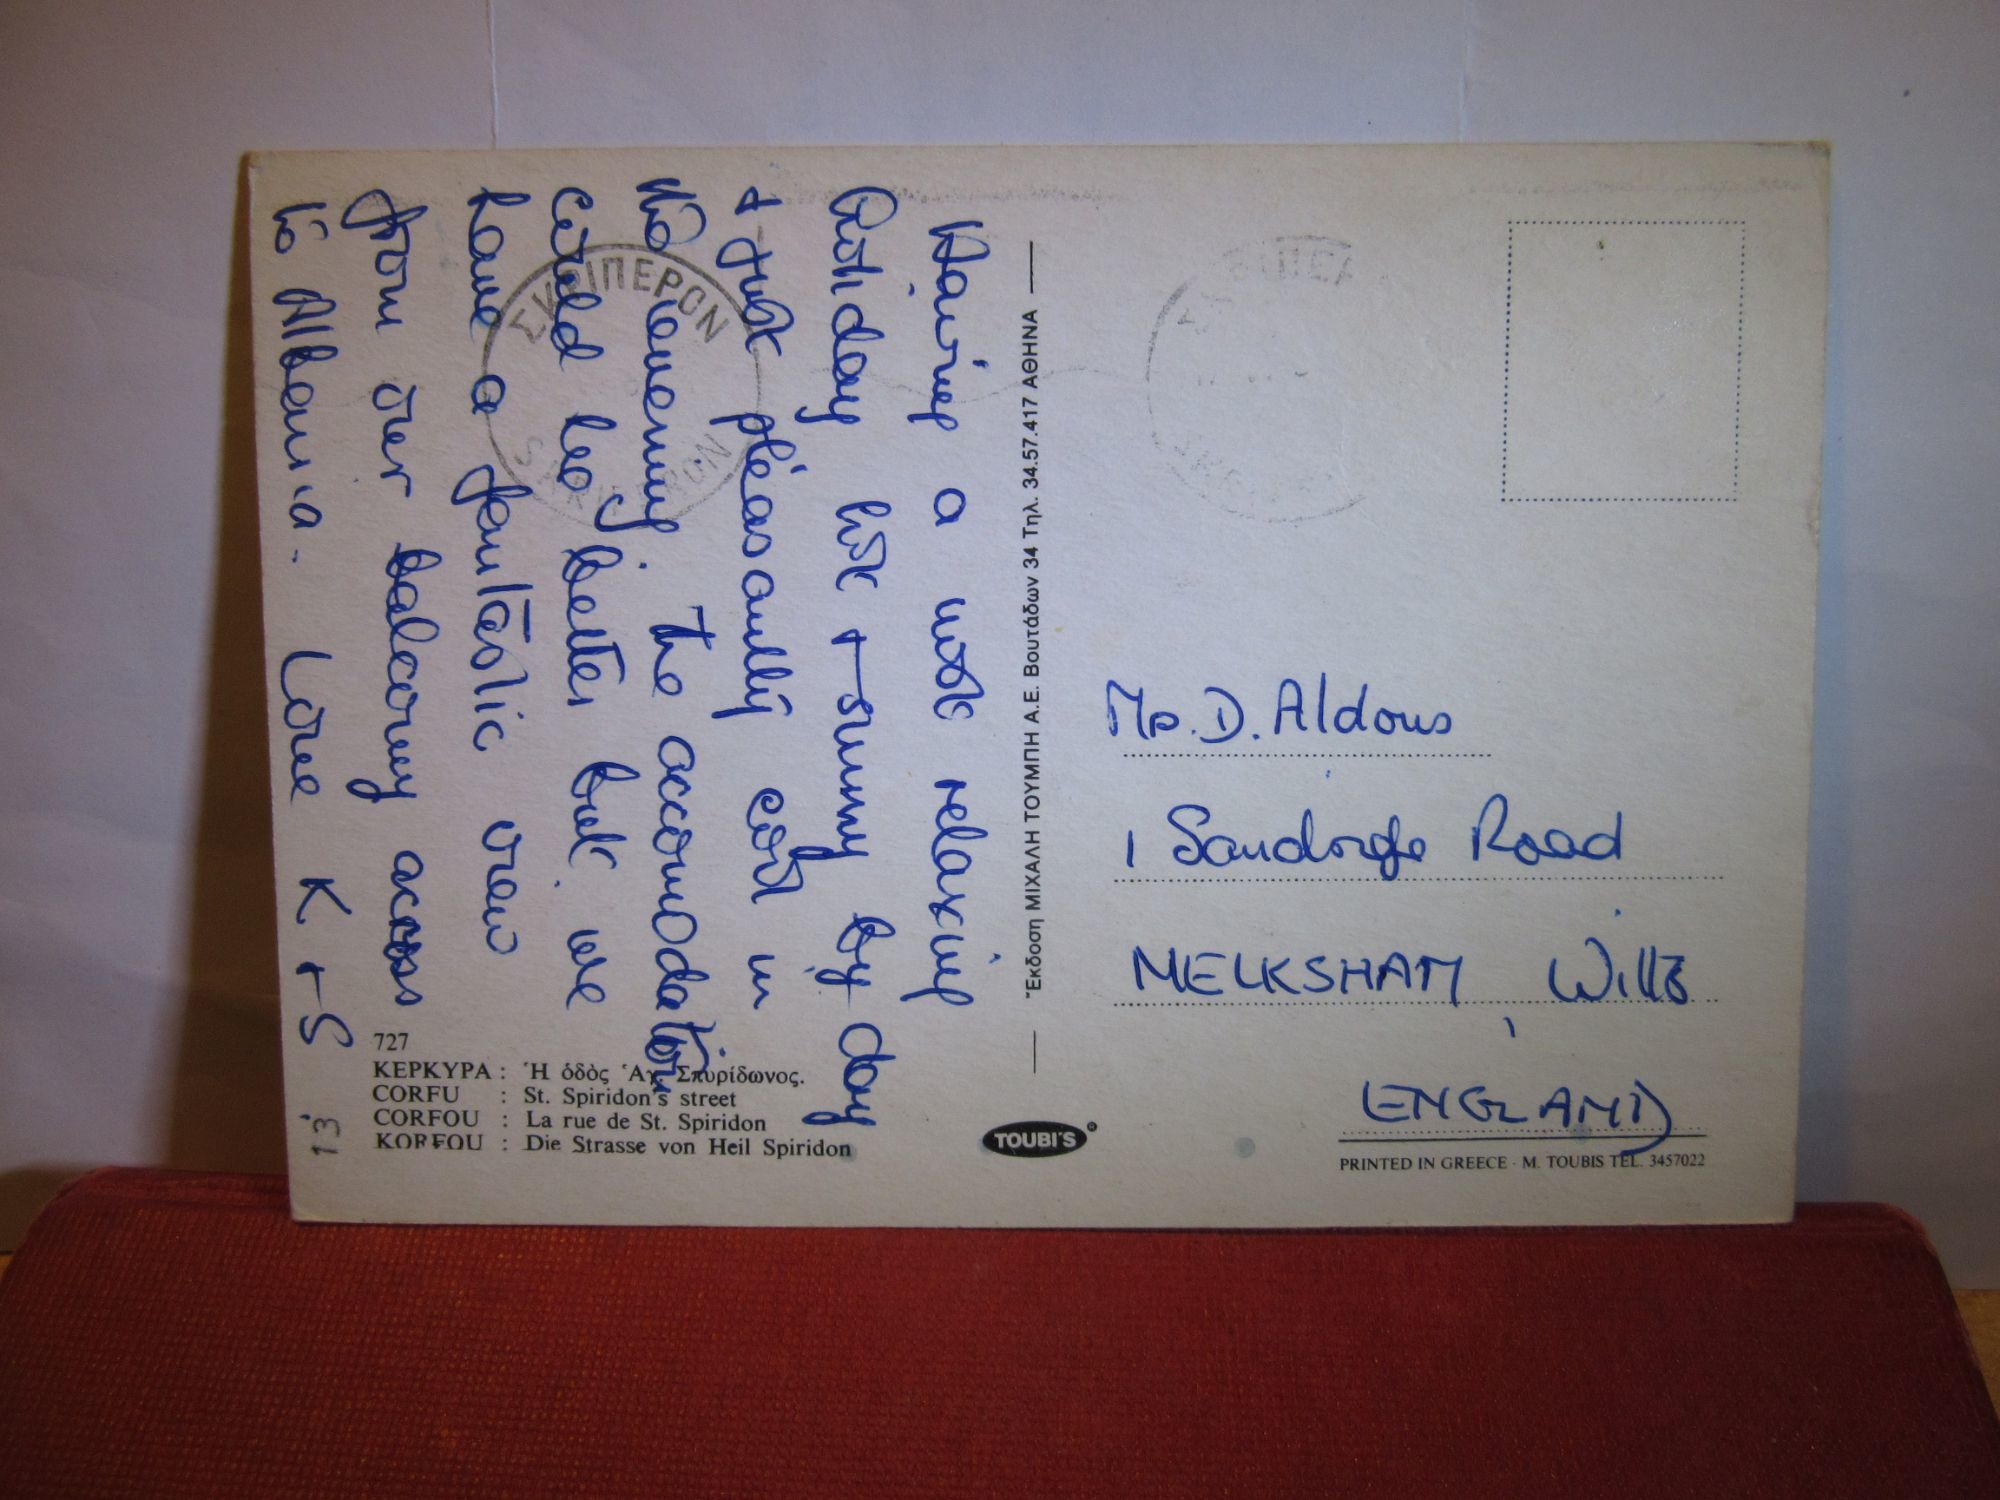 Having a most relaxing
holiday hot + sunny by day
+ just pleasantly cool in
the evening. The accomodation
could be better but we
have a fantastic view
from our balcony across
to Albania. Love K + S
ΣΚΡΙΠΕΡΟΝ
SKRIPERON
727
ΚΕΡΚΥΡΑ : Ἡ ὁδὸς Ἁγ. Σπυρίδωνος.
CORFU : St. Spiridon's street
CORFOU : La rue de St. Spiridon
KORFOU : Die Strasse von Heil Spiridon
13
Ἔκδοση ΜΙΧΑΛΗ ΤΟΥΜΠΗ Α.Ε. Βουτάδων 34 Τηλ. 34.57.417 ΑΘΗΝΑ
TOUBI'S
D. Aldous
1 Road
MELKSHAM Wilts
ENGLAND
PRINTED IN GREECE - M. TOUBIS TEL. 3457022